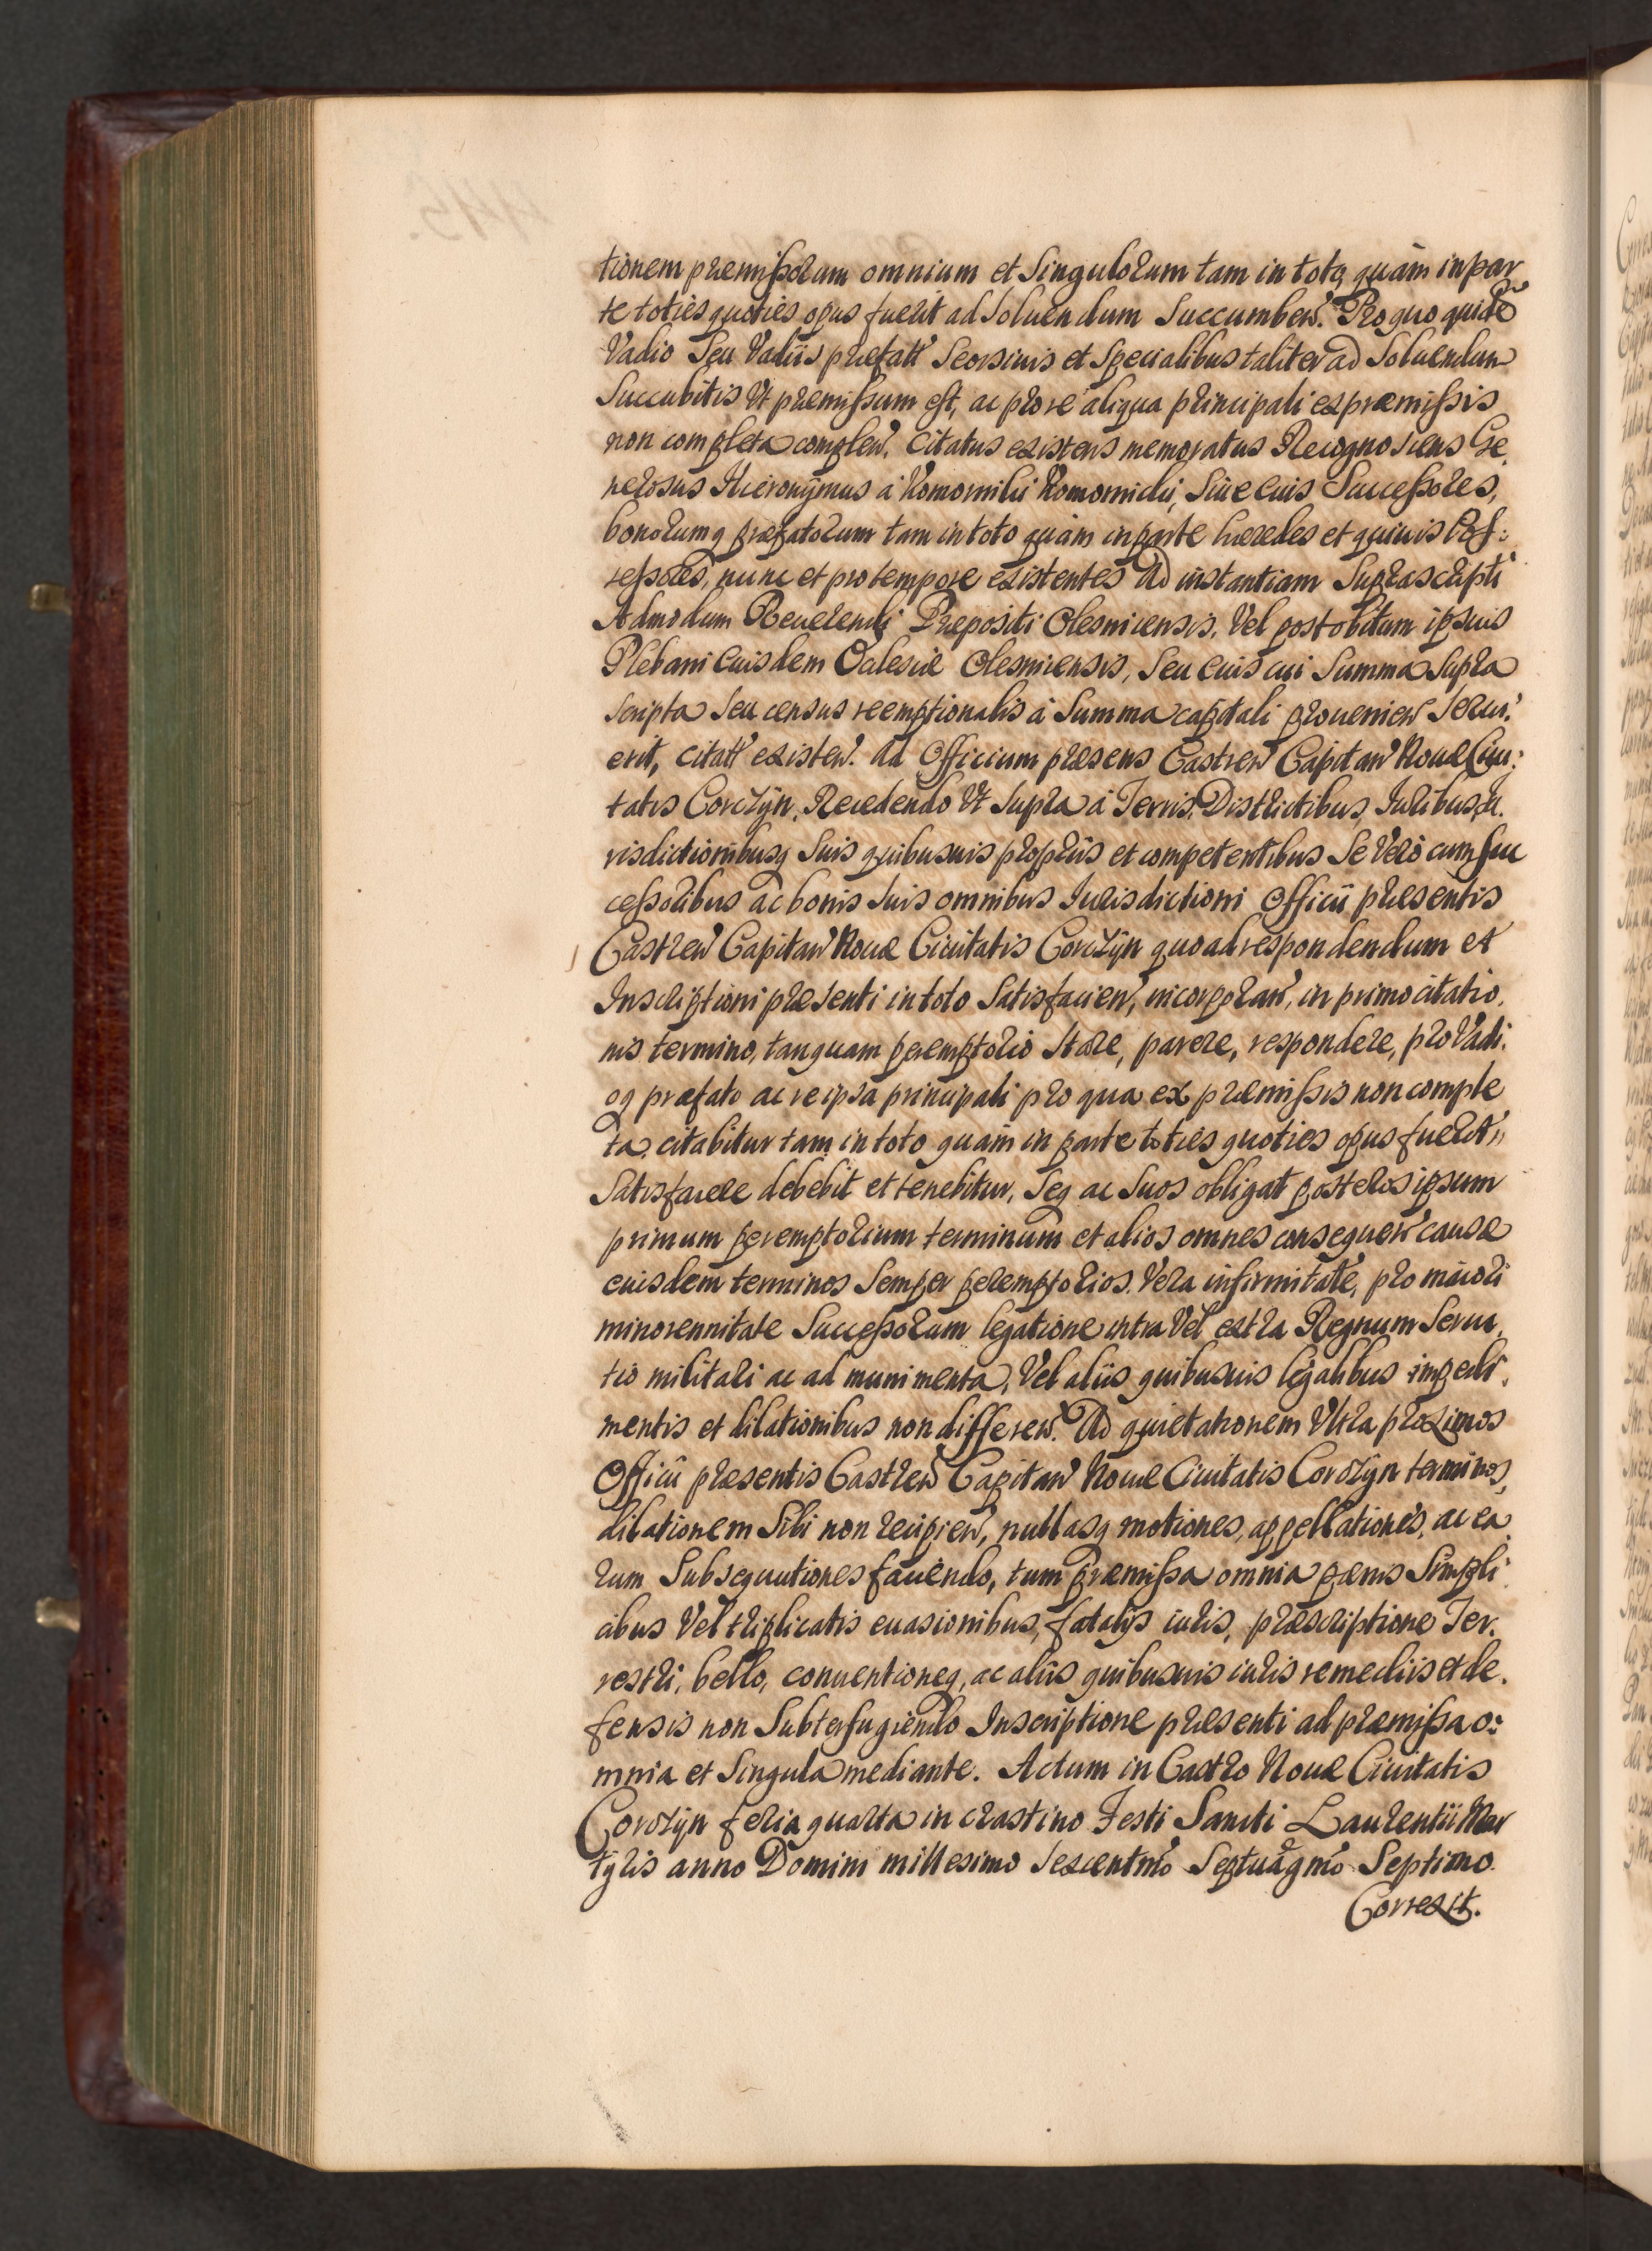 tionem præmissorum omnium et Singulorum tam in toto quàm in par
te toties quoties opus fuerit ad soluendum Succumben. Pro quo quidē
Vadio Seu Vadiis præfatt Seorsiuis et Specialibus taliter ad Soluendum
Succubitis Vt præmissum est, ac pro re aliqua principali ex præmissis
non completa complen. Citatus existens memoratus Recognoscens Ge.
nerosus Hieronÿmus à Komornihi Komornicki, Siue euis Successores,
bonorumq præfatorum tam in toto quàm in parte hæredes et quiuis Pos:
sessores, nunc et pro tempore existentes Ad instantiam Suprascripti
Admodum Reuerendi Præpositi Olesnicensis, Vel post obitum ipsius
Plebani Euisdem Ecclesiæ Olesnicensis, Seu euis cui Summa Supra
scripta Seu census reemptionalis à Summa capitali prouenien Seruı:
erit, citatt existen. ad Officium præsens Castren Capitan Nouæ Ciui:
tatis Corczÿn, Recedendo Vt Supra à Terris, Districtibus, Iuribus, Iu.
risdictionibusq Suis quibusuis proprÿs et competentibus Se Verò cum Suc
cessoribus ac bonis Suis omnibus Iurisdictioni Officii præsentis
Castren Capitan Nouæ Ciuitatis Corczÿn quo ad respondendum et
Inscriptioni præsenti in toto Satisfacien, incorporan, in primo citatio.
nis termino, tanquam peremptorio Stare, parere, respondere, pro Vadi.
oq præfato ac re ipsa principali pro qua ex præmissis non comple
ta, citabitur tam in toto quàm in parte toties quoties opus fuerit,,
Satisfacere debebit et tenebitur, Seq ac Suos obligat posteros ipsum
primum peremptorium terminum et alios omnes consequen causæ
euisdem terminos Semper peremptorios. Vera infirmitate, pro maiori
minorennitate Successorum legatione intra Vel extra Regnum Serui.
tio militari ac ad munimenta, Vel aliis quibusuis legalibus impedi.
mentis et dilationibus non differen. Ad quietationem Vltra proximos
Officii præsentis Castren Capitan Nouæ Ciuitatis Corczÿn terminos,
dilationem Sibi non recipien, nullasq motiones, appellationes, ac ea
rum Subsequutiones faciendo, tum præmissa omnia pænis Simpli.
cibus Vel triplicatis euasionibus, fatalÿs iuris, præscriptione Ter.
restri, bello, conuentioneq, ac aliis quibusuis iuris remediis et de.
fensis non Subterfugiendo Inscriptione præsenti ad præmissa o:
mnia et Singula mediante. Actum in Castro Nouæ Ciuitatis
Corczÿn feria quarta in crastino Festi Sancti Laurentii Mar
tÿris anno Domini millesimo Sexcentmo Septuagmo Septimo.
Correxit.